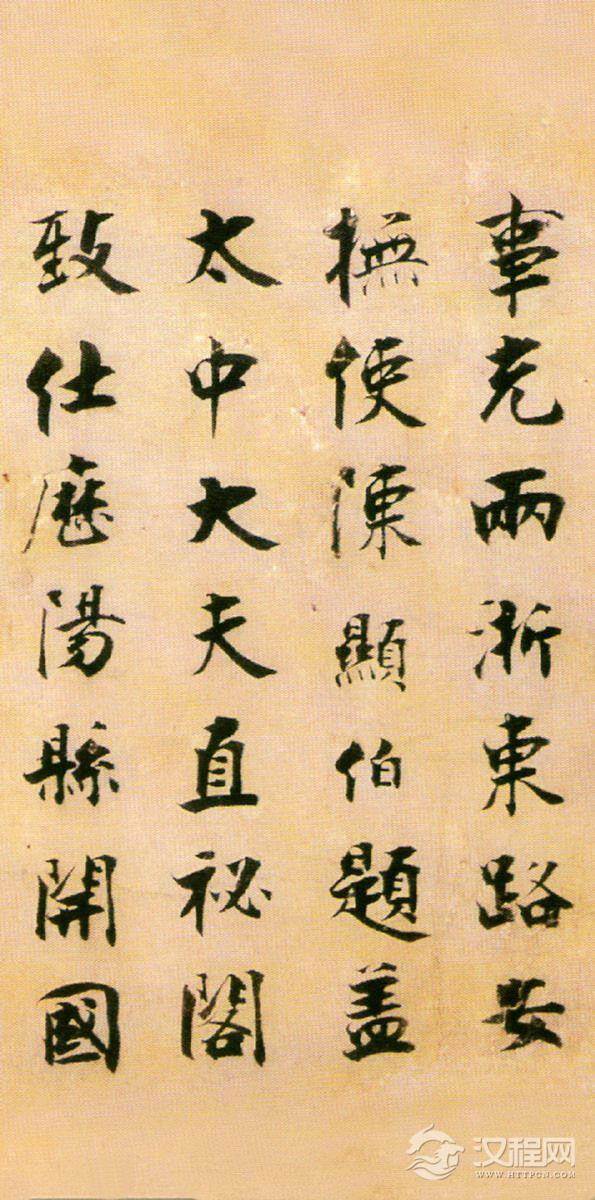 事充兩浙東路安
撫使陳顯伯題蓋
太中大夫直祕閣
致仕歷陽縣開國
汉程网
WWW.HTTPCN.COM